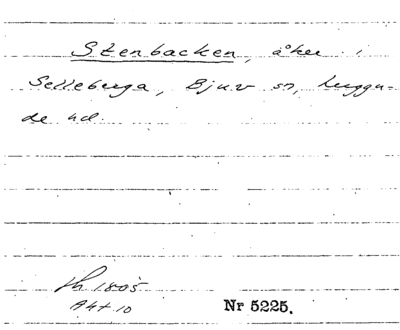 Stenbacken, åker i
Selleberga, Bjuv sn, Luggu-
de hd.
sh 1805
Akt 10
Nr 5225.